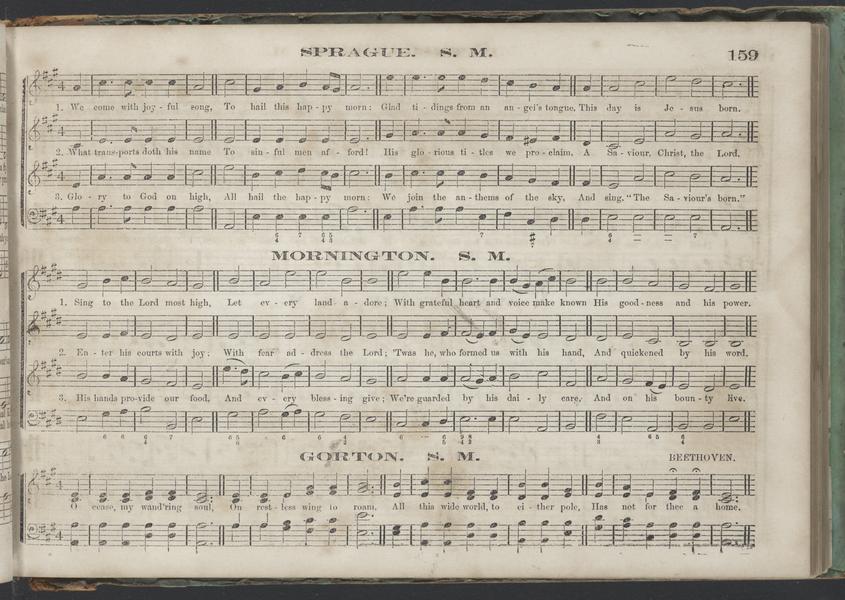 SPRAGUE. S. M. 159
1. We come with joy - ful song, To hail this hap - py morn: Glad ti - dings from an an - gel's tongue, This day is Je - sus born.
2. What trans-ports doth his name To sin - ful men af - ford! His glo - rious ti - tles we pro - claim, A Sa - viour, Christ, the Lord.
3. Glo - ry to God on high, All hail the hap - py morn: We join the an - thems of the sky, And sing, "The Sa - viour's born."
MORNINGTON. S. M.
1. Sing to the Lord most high, Let ev - ery land a - dore; With grateful heart and voice make known His good - ness and his power.
2. En - ter his courts with joy; With fear ad - dress the Lord; 'Twas he, who formed us with his hand, And quickened by his word.
3. His hands pro-vide our food, And ev - ery bless - ing give; We're guarded by his dai - ly care, And on his boun - ty live.
GORTON. S. M. BEETHOVEN.
O cease, my wand'ring soul, On rest - less wing to roam, All this wide world, to ei - ther pole, Has not for thee a home.